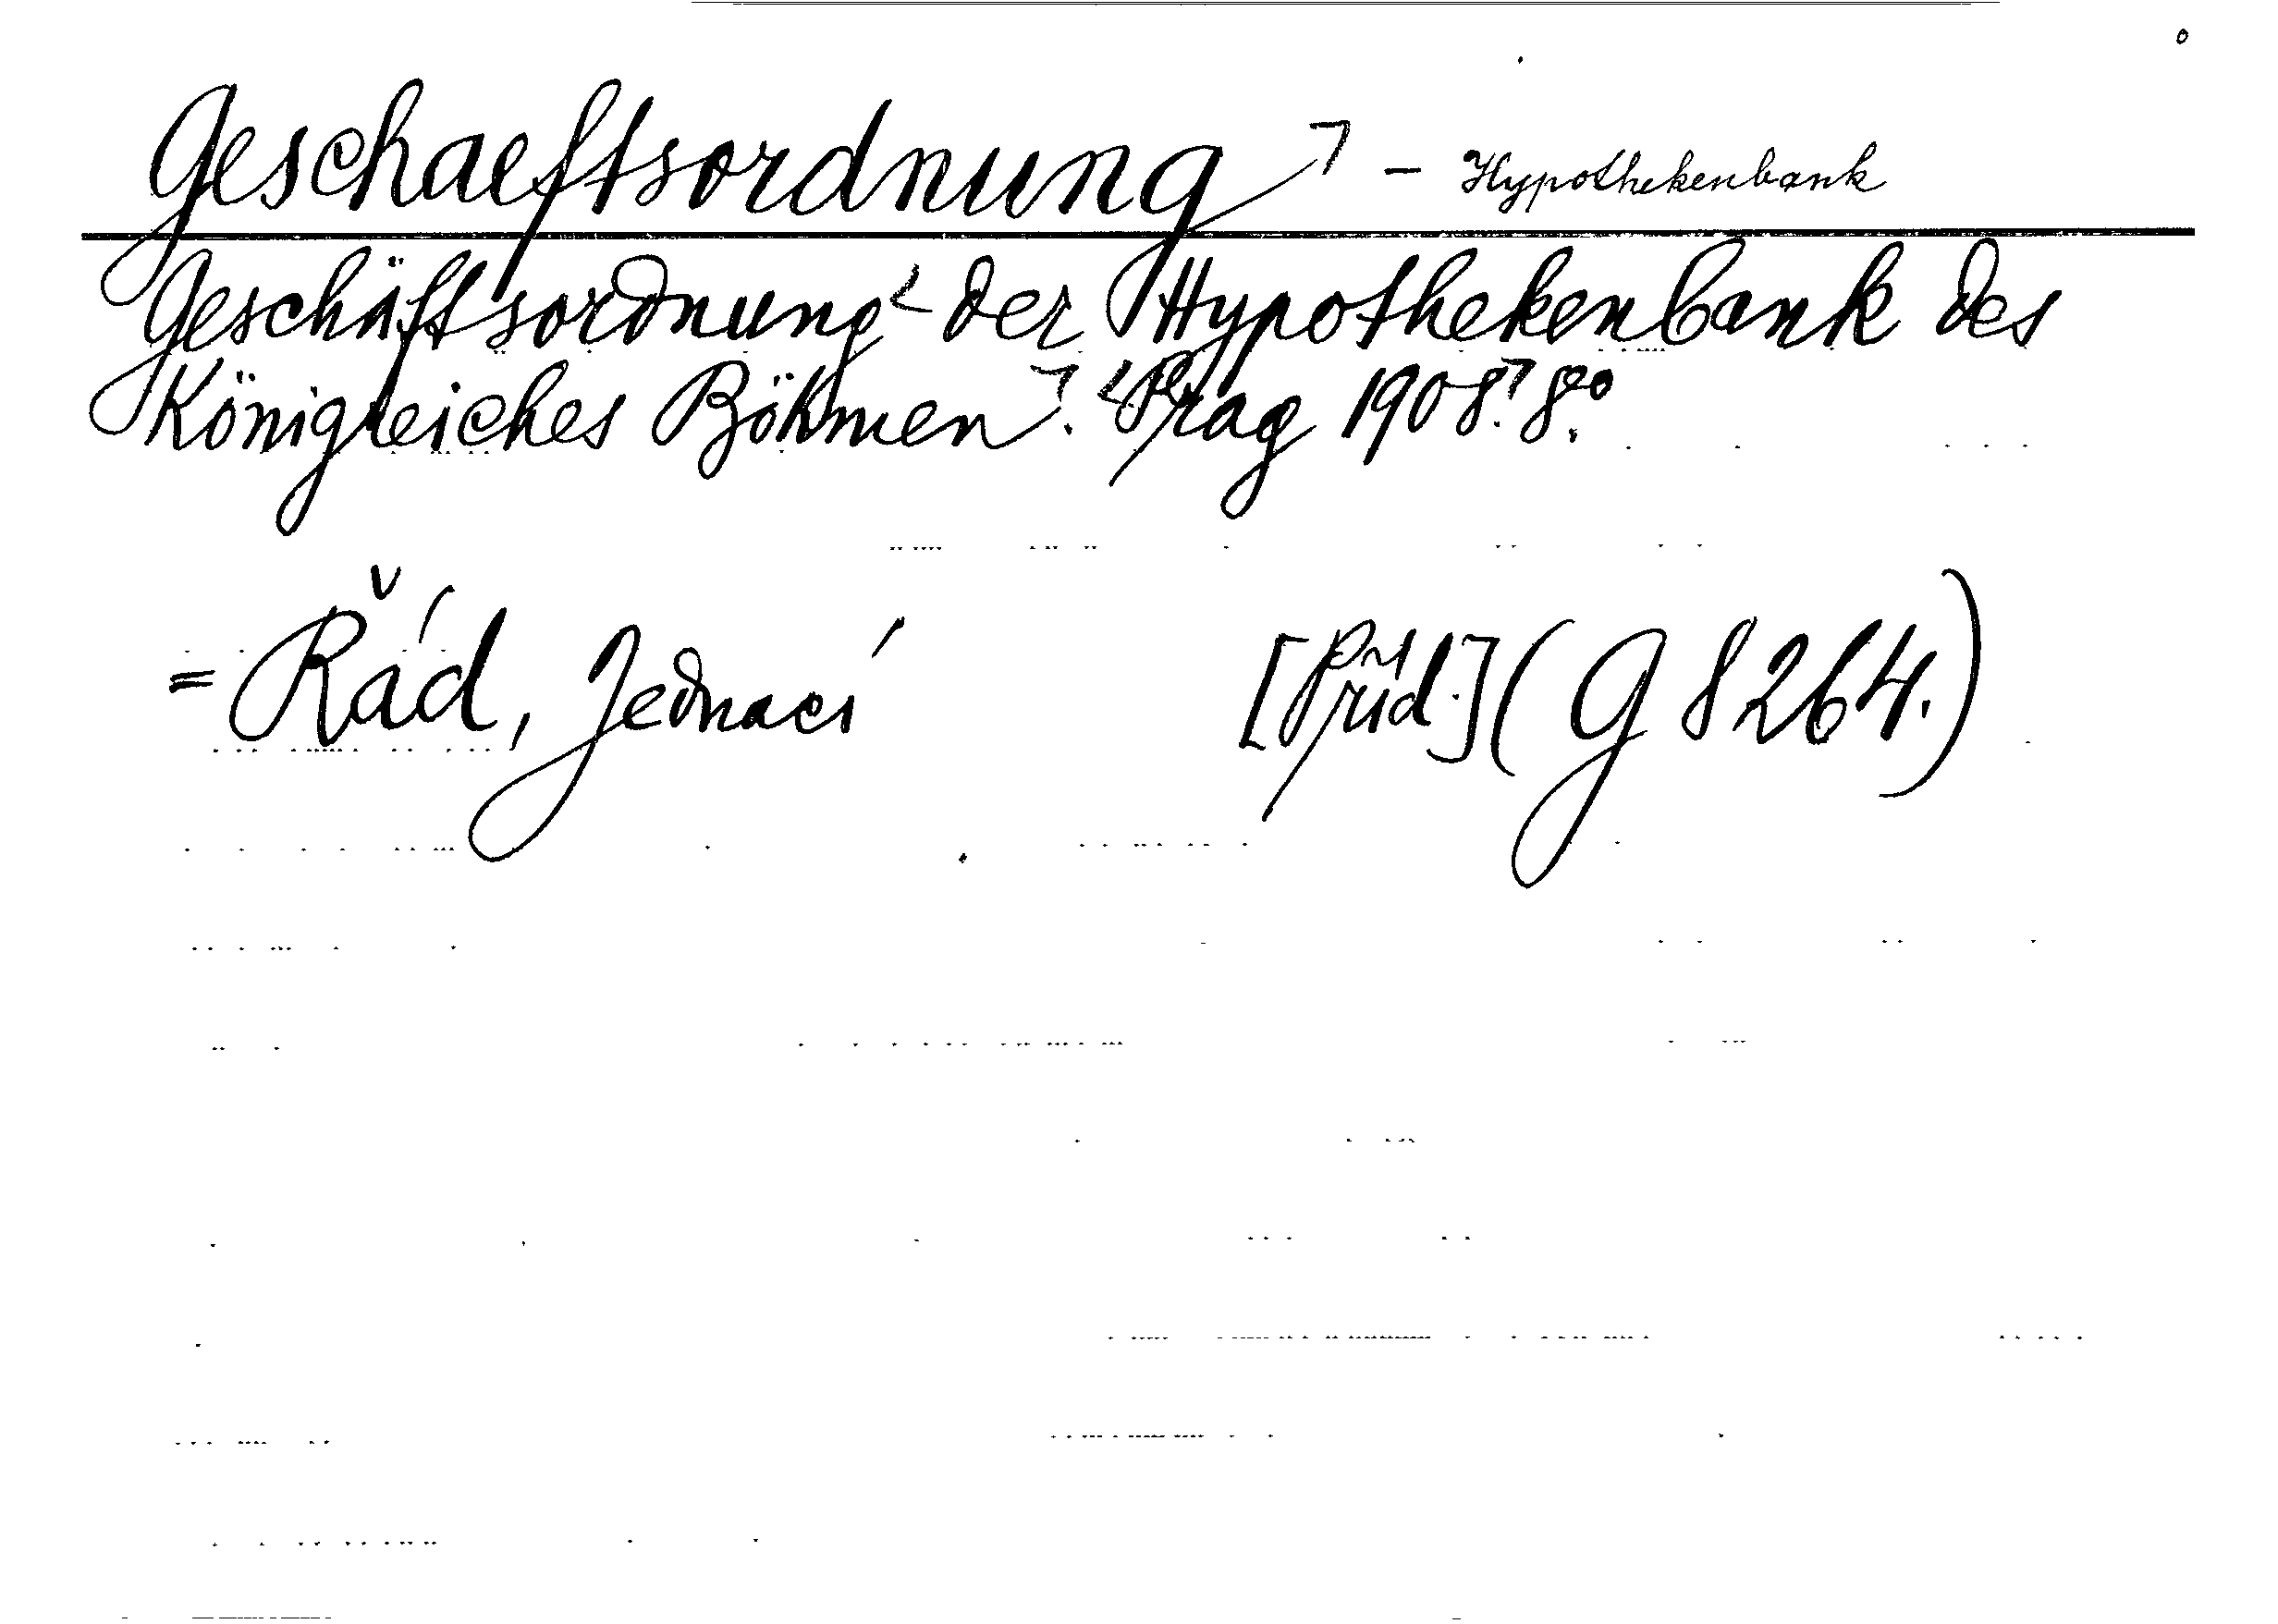 Geschaeftsordnung – Hypothekenbank
Geschäftsordnung der Hypothekenbank des
Königreiches Böhmen. Prag 1908. 8o.
= Řád, Jednací [Příd.] (G 8264.)